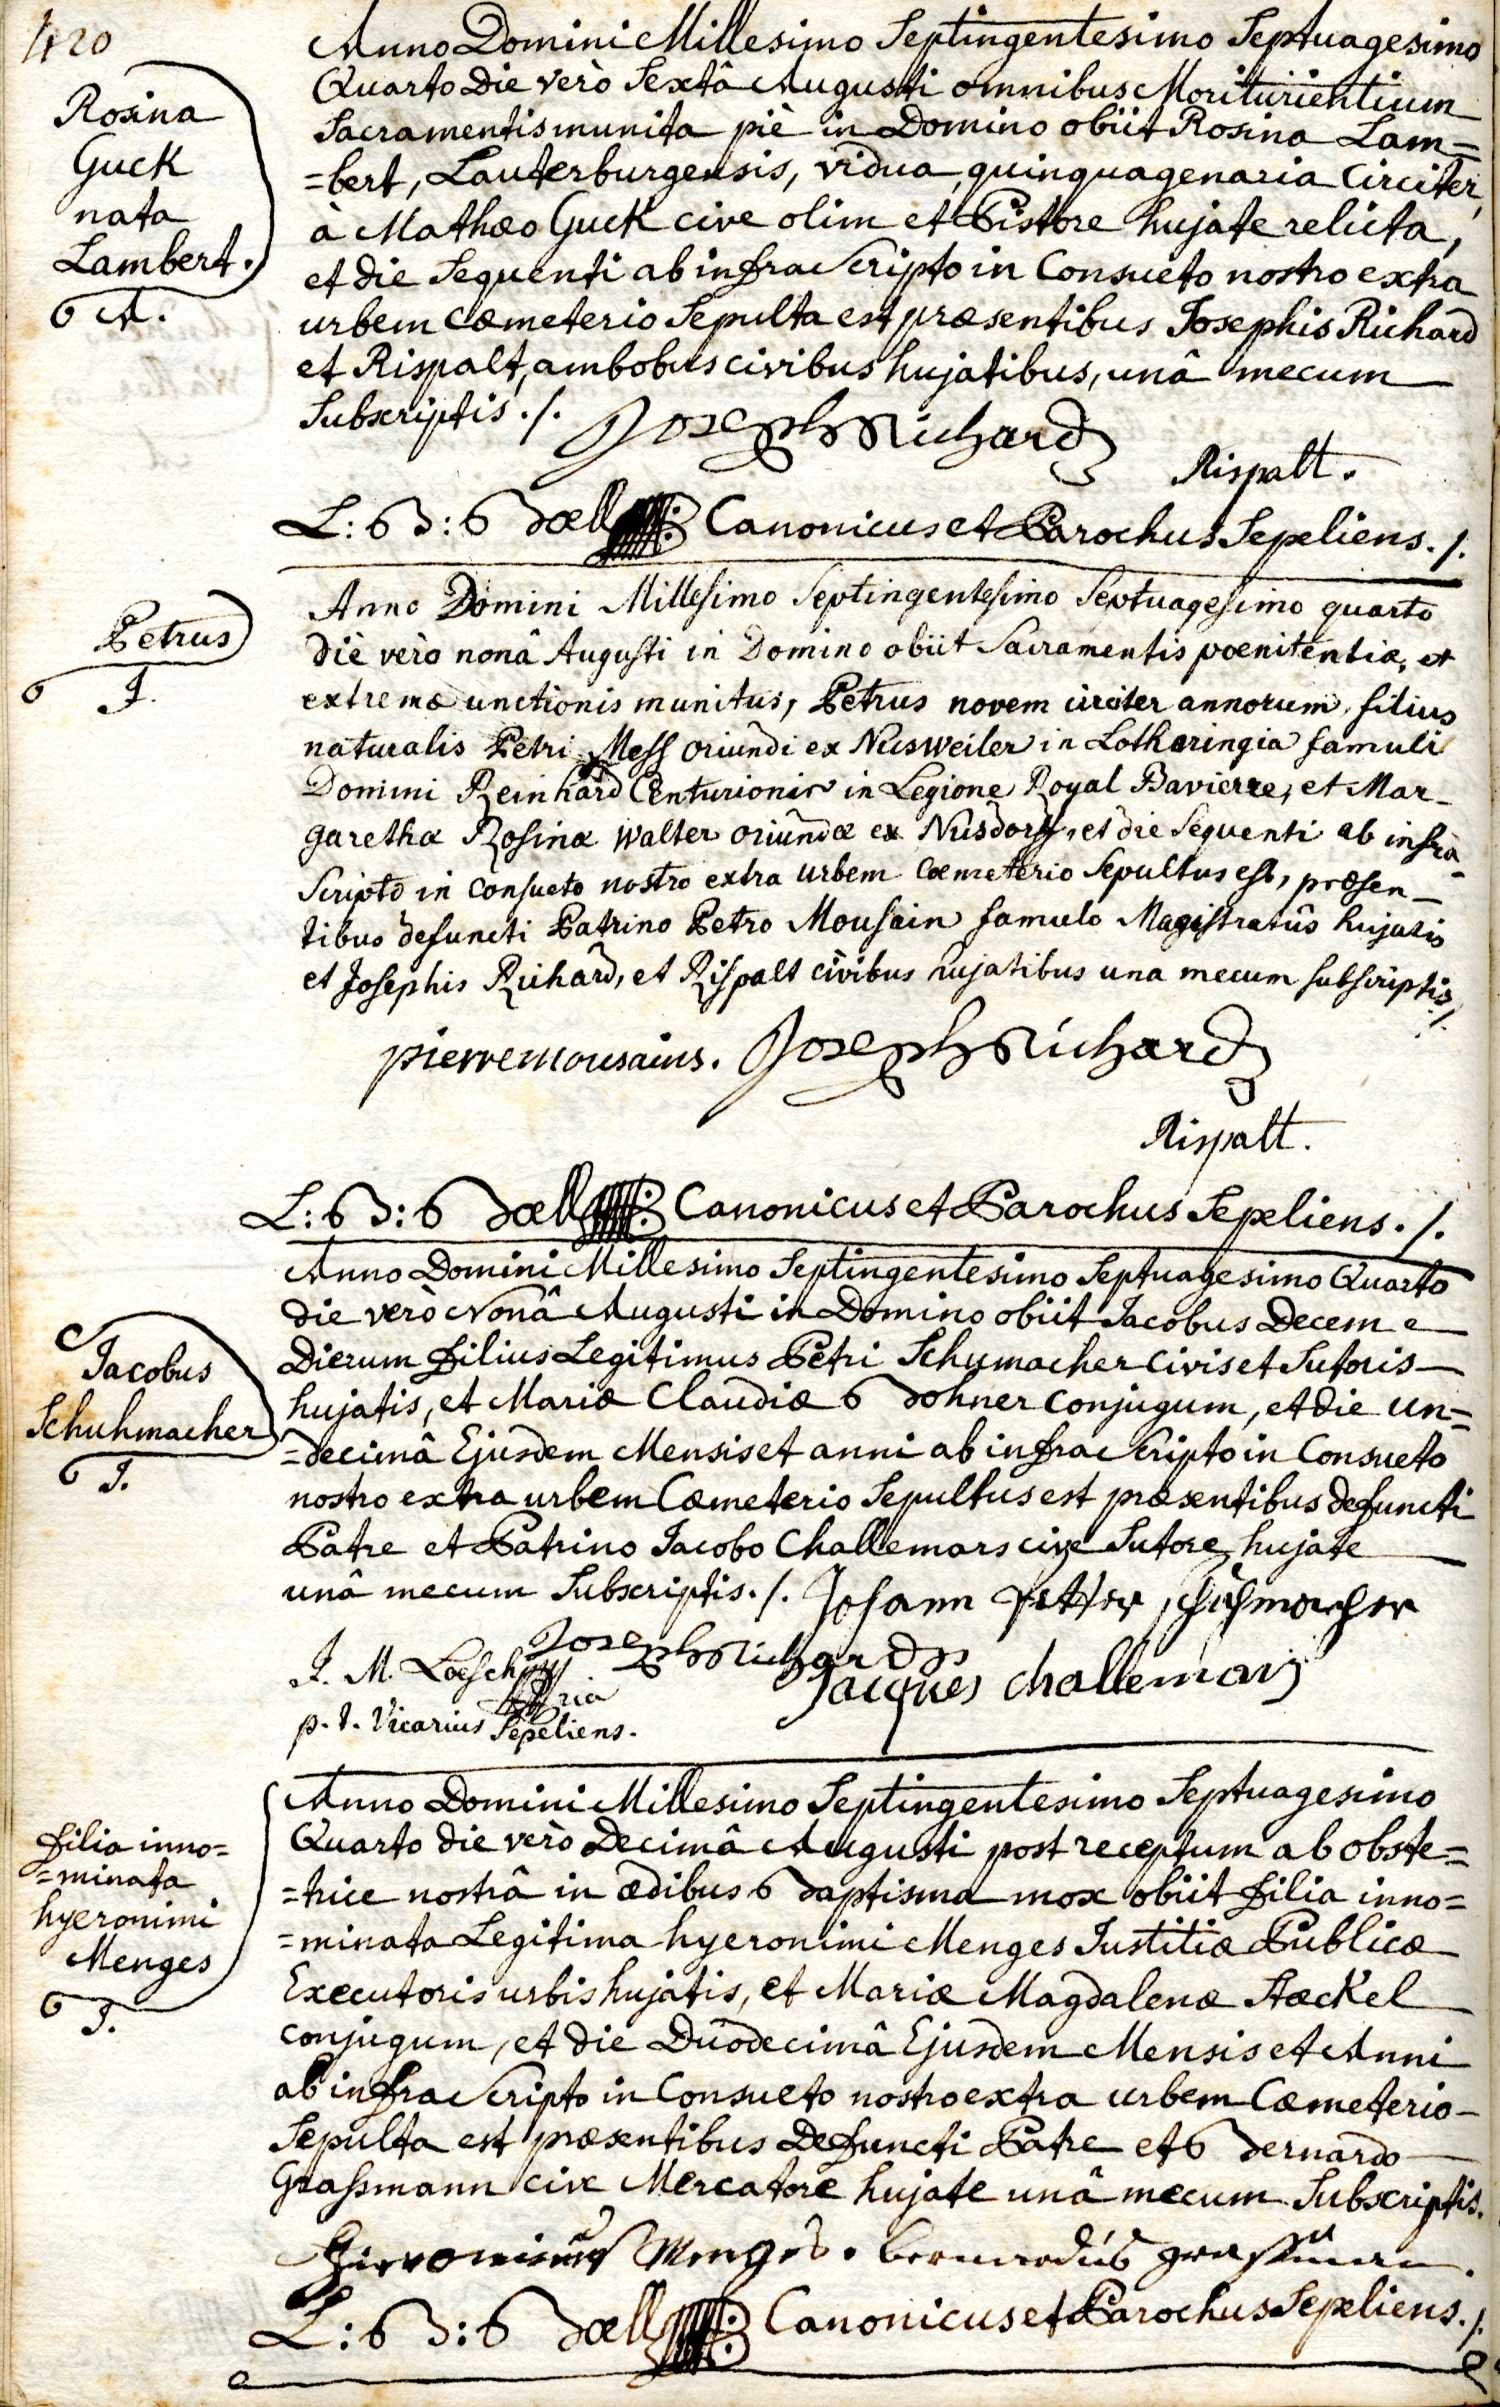 420
Rosina
Guck
nata
Lambert.
A.
Anno Domini Millesimo Septingentesimo Septuagesimo
Quarto die verò Sextâ Augusti omnibus Moriturientium
Sacramentis munita piè in Domino obiit Rosina Lam=
=bert, Lauterburgensis, vidua, quinquagenaria Circiter,
à Mathæo Guck cive olim et Pistore hujate relicta,
et die Sequenti ab infra Scripto in Consueto nostro extra
urbem Cæmeterio Sepulta est præsentibus Josephis Richard
et Rispalt, ambobus civibus hujatibus, unâ mecum
Subscriptis ./.
Joseph Richard
Rispalt.
L: B: Bæll Canonicus et Parochus Sepeliens ./.
Petrus
J.
Anno Domini Millesimo Septingentesimo Septuagesimo quarto
diè verò nonâ Augusti in Domino obiit Sacramentis poenitentiæ, et
extremæ unctionis munitus, Petrus novem circiter annorum, filius
naturalis Petri Mess oriundi ex Nusweiler in Lotharingia famuli
Domini Reinhard Centurionis in Legione Royal Bavierre, et Mar-
garethæ Rosinæ Walter oriundæ ex Nusdorff, et die Sequenti ab infra-
Scripto in consueto nostro extra urbem coemeterio Sepultus est, præsen-
tibus defuncti Patrino Petro Mousain famulo Magistratûs hujatis
et Josephis Richard, et Rispalt civibus hujatibus una mecum subscriptis ./.
pierre mousains. Joseph Richard
Rispalt.
L: B: Bæll Canonicus et Parochus Sepeliens ./.
Jacobus
Schuhmacher
J.
Anno Domini Millesimo Septingentesimo Septuagesimo Quarto
die verò Nonâ Augusti in Domino obiit Jacobus Decem
Dierum Filius Legitimus Petri Schumacher Civis et Sutoris
hujatis, et Mariæ Claudiæ Bohner Conjugum, et die un=
=decimâ Ejusdem Mensis et anni ab infra Scripto in Consueto
nostro extra urbem Cæmeterio Sepultus est præsentibus defuncti
Patre et Patrino Jacobo Challemars cive Sutore hujate
unâ mecum Subscriptis ./. Johann Petter schuhmacher
Joseph Richard
J. M. Loesch
Jacques challemars
p. t. Vicarius Sepeliens.
Filia inno=
=minata
hyeronimi
Menges
J.
Anno Domini Millesimo Septingentesimo Septuagesimo
Quarto die verò Decimâ Augusti post receptum ab obste=
=trice nostrâ in ædibus Baptisma mox obiit Filia inno=
=minata Legitima hyeronimi Menges Justitiæ Publicæ
Executoris urbis hujatis, et Mariæ Magdalenæ Stæckel
conjugum, et die Duodecimâ Ejusdem Mensis et Anni
ab infra Scripto in Consueto nostro extra urbem Cæmeterio
Sepulta est præsentibus Defuncti Patre et Bernardo
Grassmann cive Mercatore hujate unâ mecum Subscriptis.
Hieronimus Menges. bernardus grassman.
L: B: Bæll Canonicus et Parochus Sepeliens ./.